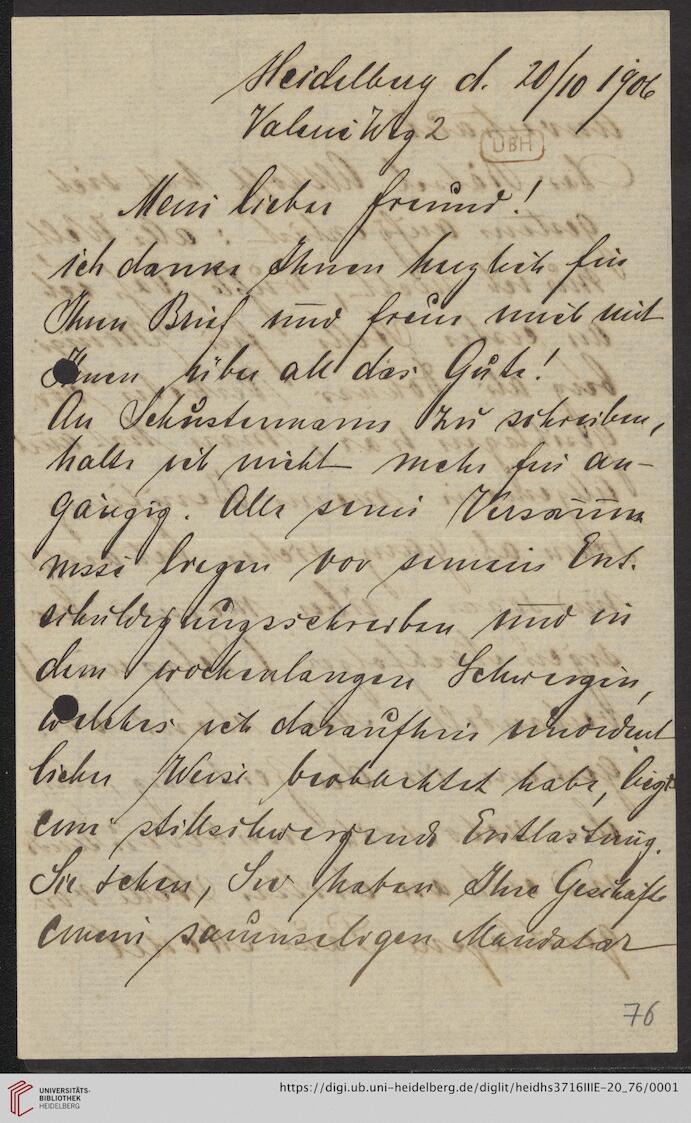 Heidelberg d. 20/10 1906
Valerieweg 2
UBH
Mein lieber Freund!
ich danke Ihnen herzlich für
Ihren Brief und freue mich mit
Ihnen über all das Gute!
An Schustermann zu schreiben,
halte ich nicht mehr für an-
gängig. Alle seine Versäum
nisse liegen vor seinem Ent-
schuldigungsschreiben und in
dem wochenlangen Schweigen,
welches ich daraufhin unordent
licher Weise beobachtet habe, liegt
eine stillschweigende Entlastung.
Sie sehen, Sie haben Ihre Geschäfte
einem saumseligen Mandatar
76
UNIVERSITÄTS-
BIBLIOTHEK
HEIDELBERG
https://digi.ub.uni-heidelberg.de/diglit/heidhs3716IIIE-20_76/0001